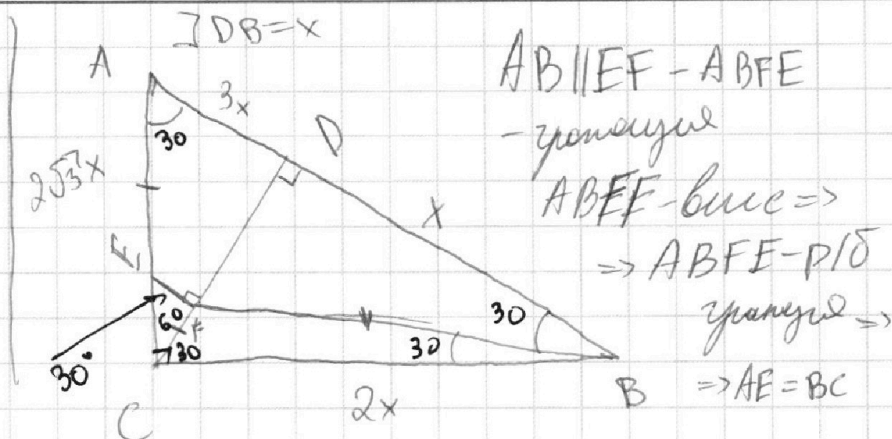 ] DB = x
A
3x
D
30
2√3x
x
E
30
60
F
30
30
30°
C
2x
B
AB||EF - ABFE
- трапеция
ABFE - впис =>
=> ABFE - р/б
трапеция =>
=> AE = BC